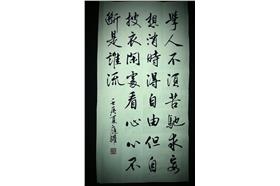 學人不須苦馳求妄
想消時得自由但自
披衣閑處看心心不
斷是誰流